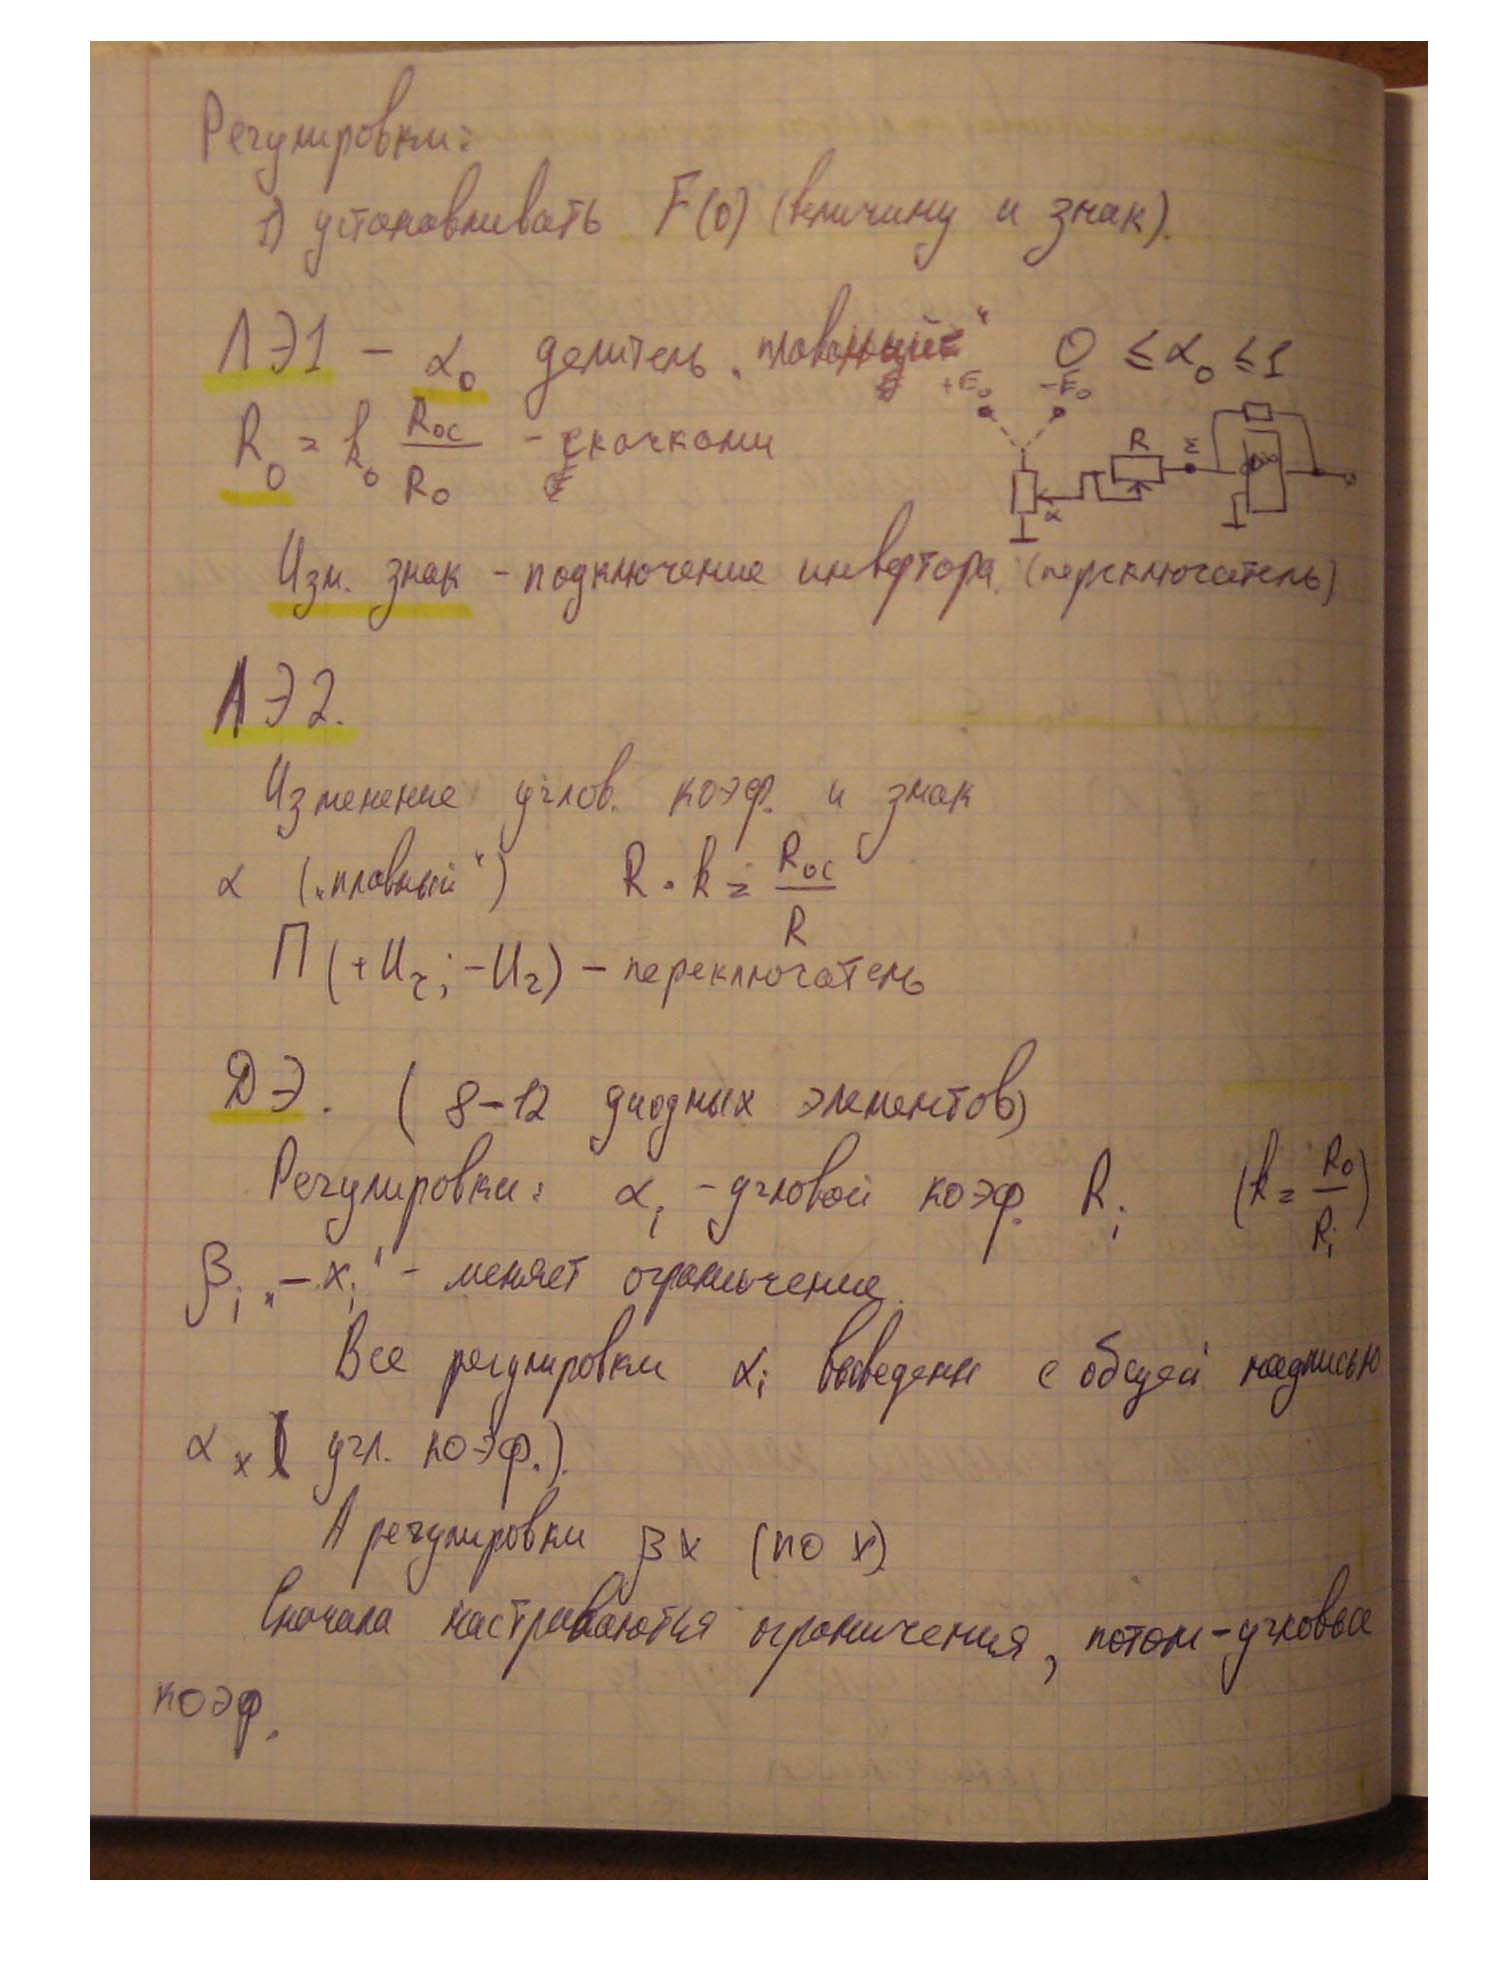 Регулировки:
1) устанавливать F(0) (величину и знак).
ЛЭ1 – α₀ делитель „плавный“ 0 ≤ α₀ ≤ 1
+E₀ –E₀
R₀ = k₀ Rос/R₀ – скачками
R Σ
α
Изм. знак – подключение инвертора (переключатель)
ЛЭ2.
Изменение углов. коэф. и знак
α („плавный“) R · k = Rос/R
П (+Uг; –Uг) – переключатель
ДЭ. (8–12 диодных элементов)
Регулировки: αi – угловой коэф. Ri (k = R₀/Ri)
βi „– xi“ – меняет ограничение.
Все регулировки αi выведены с общей надписью
αx ( угл. коэф.).
А регулировки βx (по x)
Сначала настраиваются ограничения, потом – угловые
коэф.